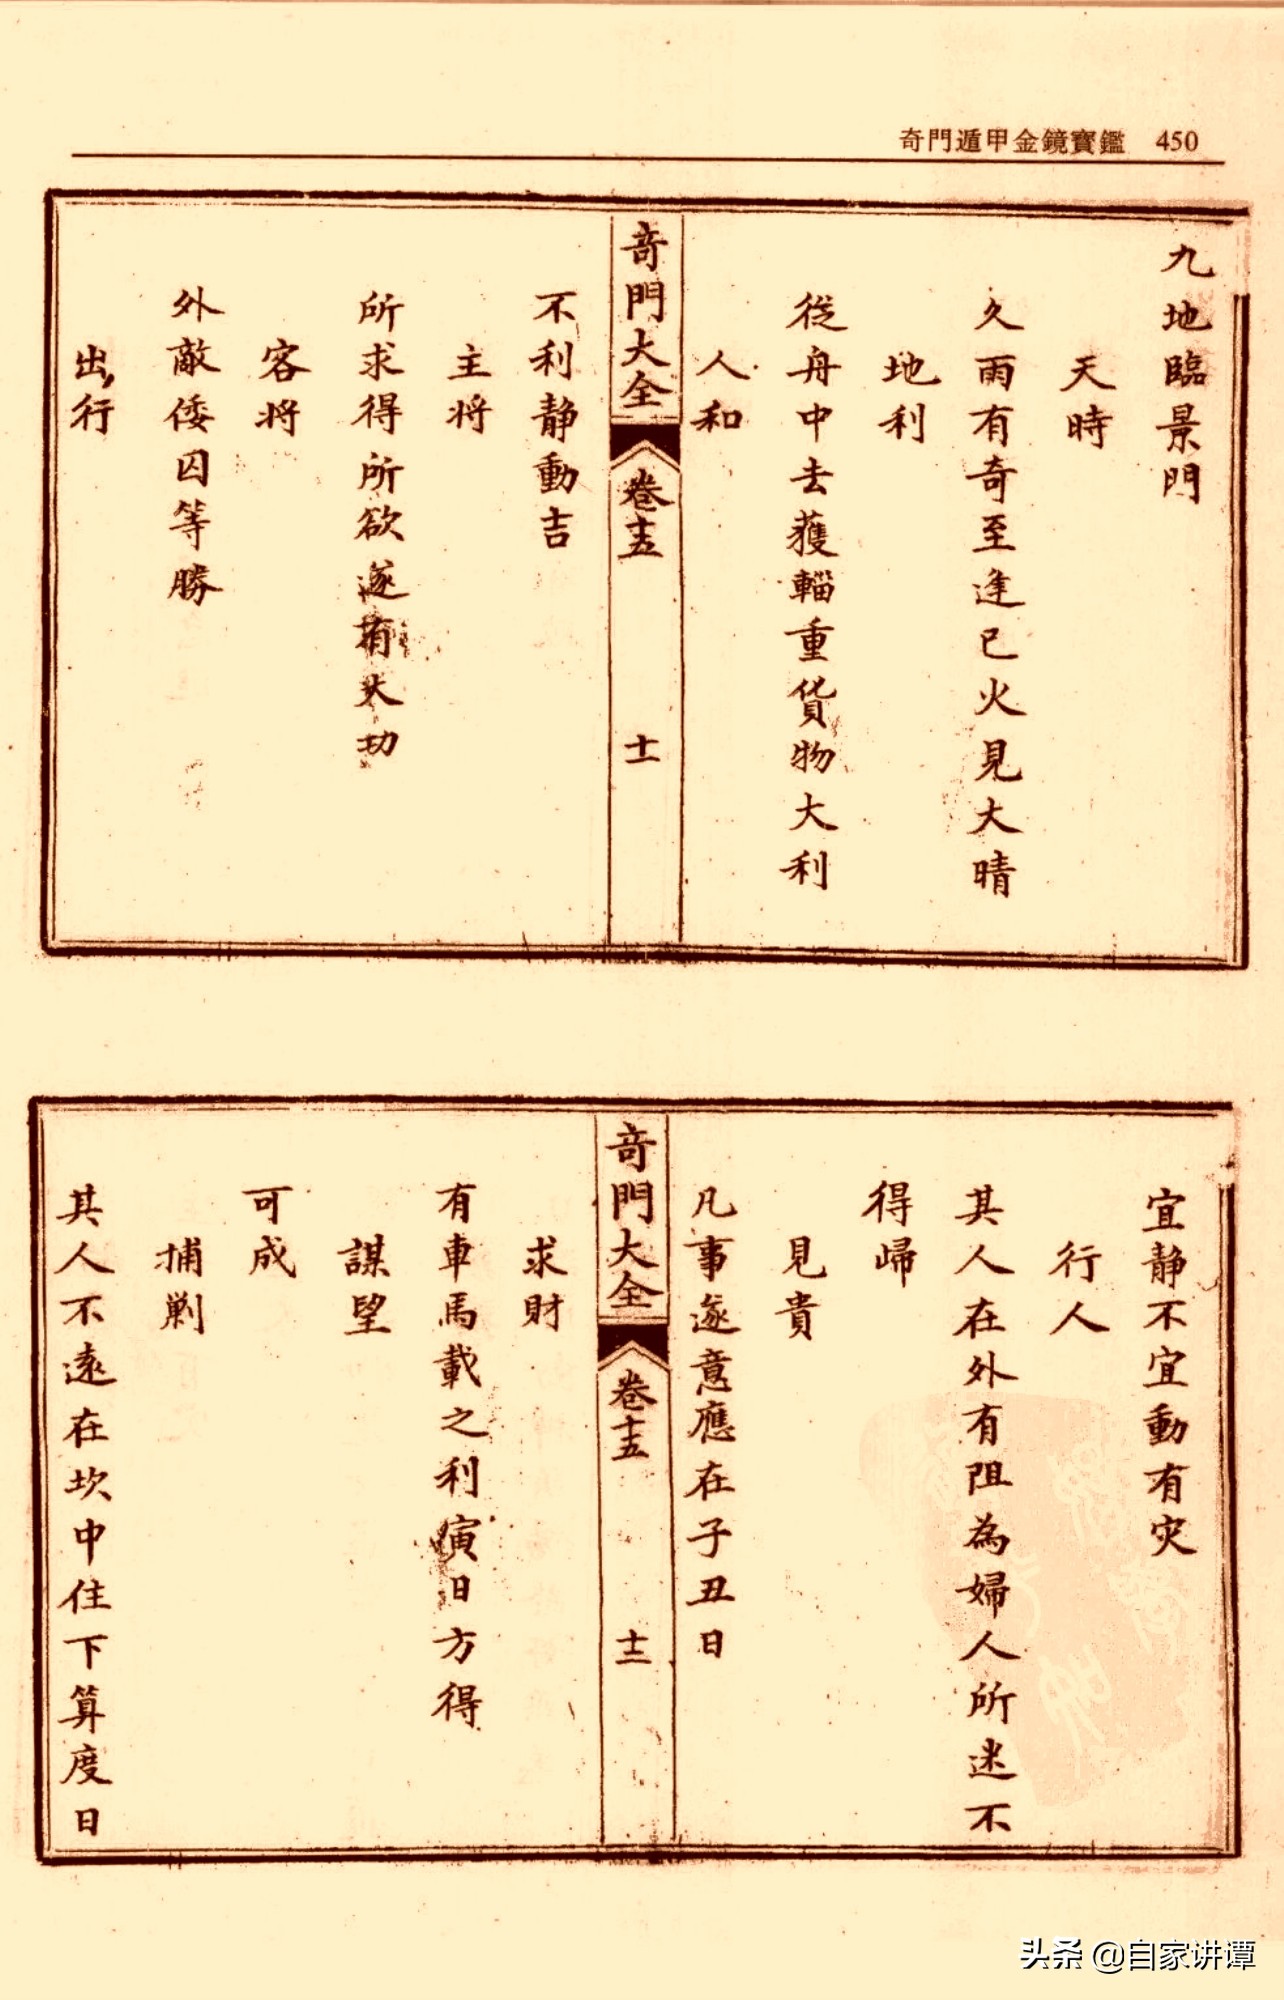 奇門遁甲金鏡寶鑑 450
九地臨景門
天時
久雨有奇至逢已火見大晴
地利
從舟中去獲輜重貨物大利
人和
奇門大全 卷十五 十一
不利静動吉
主將
所求得所欲遂有大功
客將
外敵倭囚等勝
出行
宜静不宜動有灾
行人
其人在外有阻為婦人所迷不
得歸
見貴
凡事遂意應在子丑日
奇門大全 卷十五 十二
求財
有車馬載之利寅日方得
謀望
可成
捕剿
其人不遠在坎中住下算度日
头条 @自家讲谭